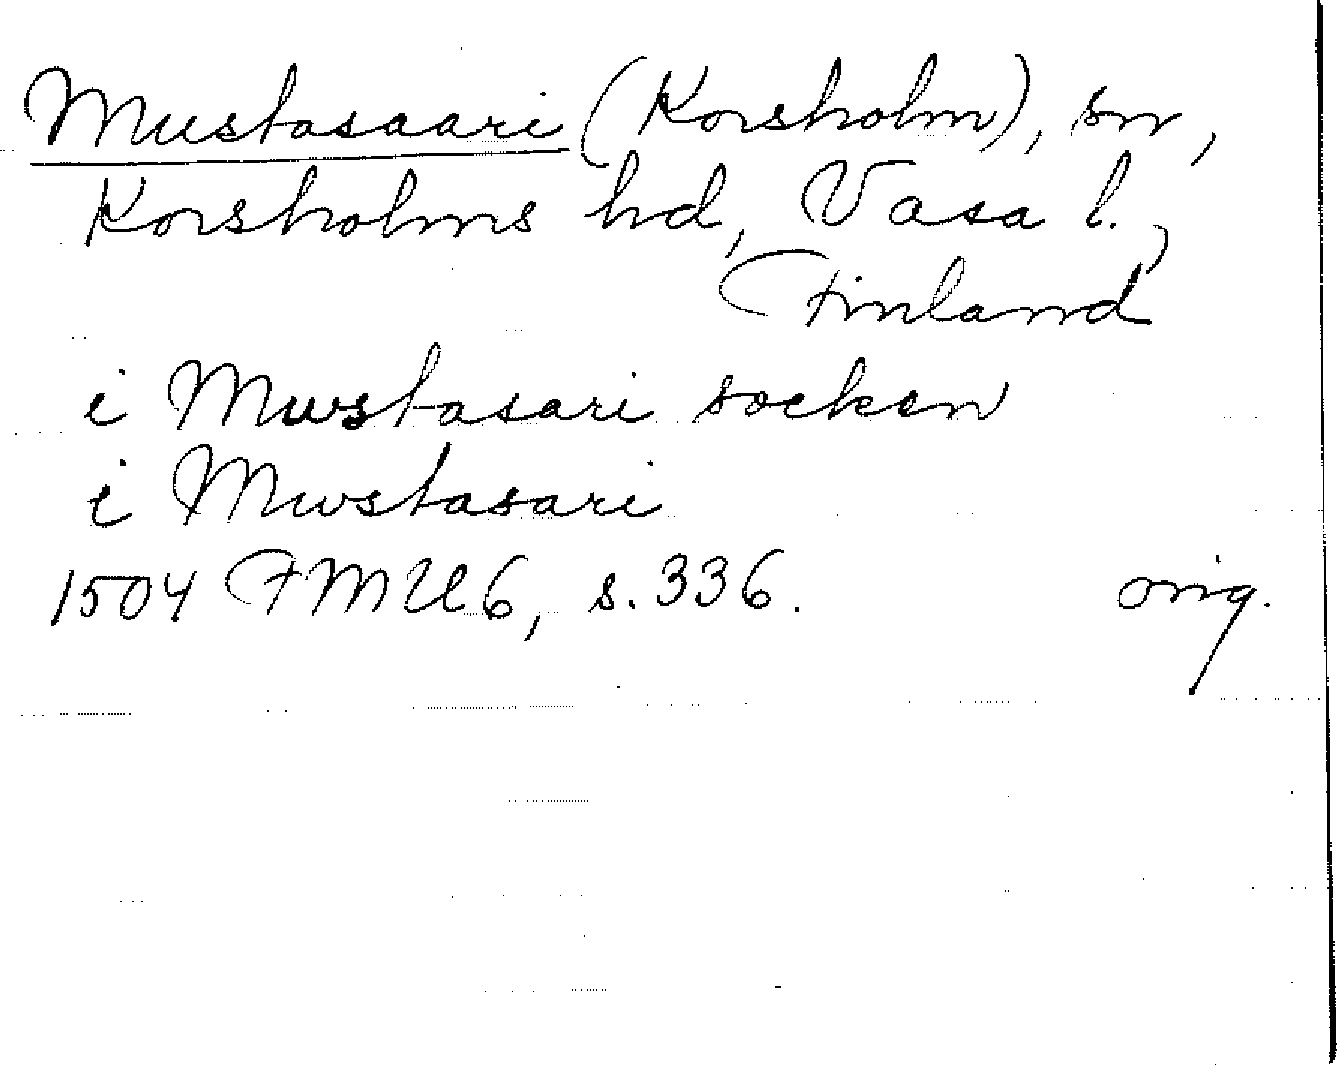 Mustasaari (Korsholm), sn,
Korsholms hd, Vasa l.,
Finland
i Mwstasari socken
i Mwstasari
1504 FMU 6, s. 336. orig.